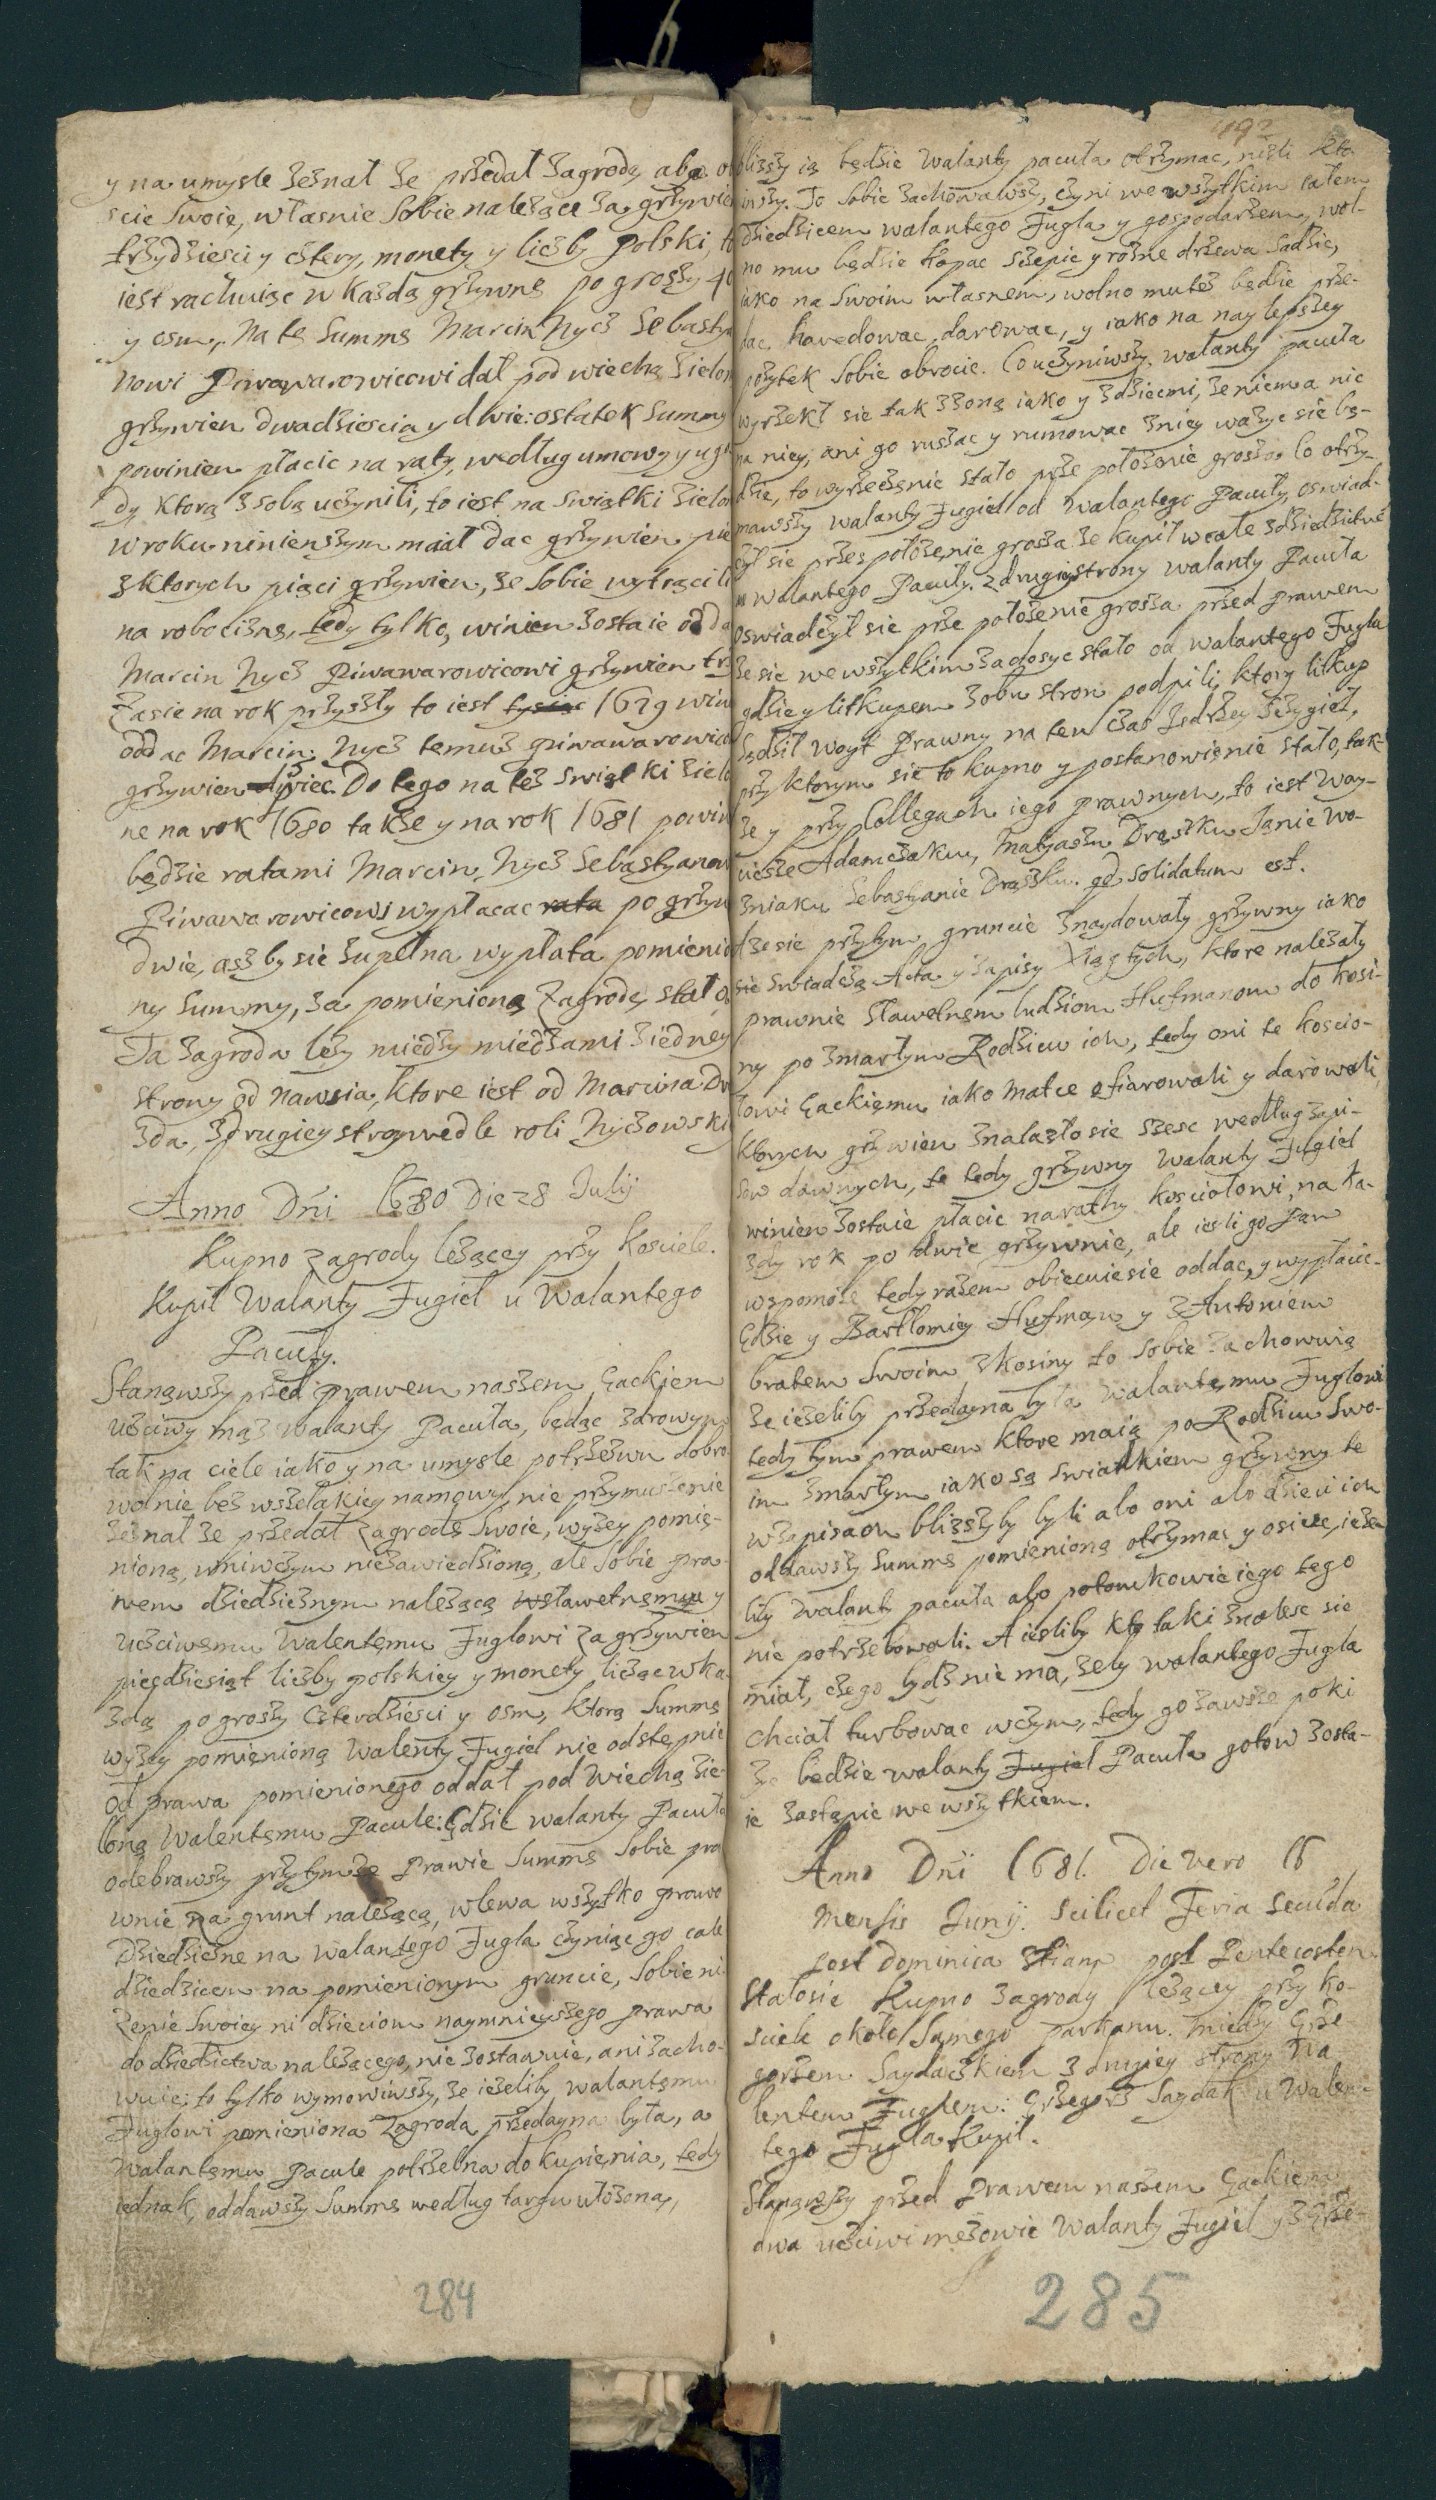 y na umysle zeznał ze przedał zagrodę abo
scie swoie, własnie sobie należące za grzywien
trzydziesci y cztery, monety y liczby polski,
iest rachuiąc w kazdą grzywnę po groszy 40
y osm, Na tę summę Marcin Nycz Sebastya
nowi Piwowarowicowi dał pod wiechą zielon
grzywien dwadziescia y dwie: ostatek summy
powinien płacic na raty, według umowy y ugo
dy ktorą z sobą uczynili, to iest na swiątki zielon
w roku ninienszym miał dac grzywien pię
z ktorych piąci grzywien, ze sobie wytrącili
na robociznę, tedy tylko, winien zostaie odda
Marcin Nycz Piwawarowicowi grzywien trz
Zasie na rok przyszły to iest tysiąc 1679 win
oddac Marcin Nycz temuz piwawarowico
grzywien piec. Do tego na też swiątki zielo
ne na rok 1680 także y na rok 1681 powin
będzie ratami Marcin Nycz Sebastyanow
Piwawarowicowi wypłacac rata po grzyw
dwie, aszby sie zupełna wypłata pomienio
ny summy, za pomienioną Zagrodę stała
Ta zagroda leży miedzy miedzami z iedney
strony od nawsia, ktore iest od Marcina Dr
zda, z drugiey strony wedle roli Nyczowski
Anno Dni 1680 Die 28 Julij
Kupno zagrody leżącey przy kosciele.
Kupił Walanty Fugiel u Walantego
Pacuły.
Stanąwszy przed prawem naszem Gackiem
uczciwy mąz Walanty Pacuła, będąc zdrowym
tak na ciele iako y na umysle potrzezwu dobro
wolnie bez wszelakiey namowy, nie przymuszenie
zeznał ze przedał zagrodę swoie, wyżey pomie-
nioną, wniwczym niezawiedzioną, ale sobie pra-
wem dziedzicznym należącą wsławetnemu y
uczciwemu Walentemu Fuglowi za grzywien
pięcdziesiąt liczby polskiey y monety licząc w ka
zdą po groszy czterdziesci y osm, ktorą summę
wyżey pomienioną Walenty Fugiel nie odstepnie
od prawa pomienionego oddał pod wiechą zie-
loną Walentemu Pacule: Gdzie walanty Pacuła
odebrawszy przytymze Prawie summę sobie pra
wnie na grunt należącą, wlewa wszytko prawo
Dziedziczne na Walantego Fugla czyniąc go cale
dziedzicem na pomienionym gruncie, sobie ni
Zenie swoiey ni dzieciom naymnieyszego prawa
do dziedzictwa należącego, nie zostawuie, ani zacho-
wuie: to tylko wymowiwszy, ze iezeliby walantemu
Fuglowi pomieniona zagroda przedayna była, a
Walantemu Pacule potrzebna do kupienia, tedy
iednak, oddawszy summę według targu ułożoną,
284
192
blizszy ią będzie Walanty pacuła otrzymac, niżli kto
inszy. To sobie zachowawszy, czyni we wszytkim całem
dziedzicem walantego Fugla y gospodarzem, wol-
no mu będzie kopac szczepic y rożne drzewa sadzic,
iako na swoim własnem, wolno mu też będzie prze-
dac, havedowac, darowac, y iako na naylepszey
pożytek sobie obrocic. Co uczyniwszy, walanty pacuła
wyrzekł sie tak z zoną iako y z dziecmi, ze niema nic
na niey, ani go ruszac y rumowac z niey wazyc sie bę-
dzie, to wyrzeczęnie stało prze położenie grosza. Co otrzy-
mawszy walanty Fugiel od walantego Pacuły, oswiad-
czył sie przes położęnie grosza ze kupił wcale z dziedzictwe
u walantego Pacuły. z drugiey strony walanty Pacuła
oswiadczył sie prze położenie grossa przed prawem
ze sie we wszytkim zadosyc stało od walantego Fugla
gdzie y litkupem zobu stron podpili, ktory litkup
sądził woyt Prawny na ten czas Jędrzey Szczygieł,
przy ktorym sie to kupno y postanowienie stało, tak-
ze y przy Collegach iego prawnych, to iest Woy-
ciesze Adamczaku, Matyaszu Drązku Janie Wo-
zniaku Sebastyanie Drązku. qd solidatum est.
A ze sie przytym gruncie znaydowały grzywny iako
sie swiadczą Acta y zapisy Xiąg tych, ktore należały
prawnie sławetnem ludziom Hufmanom do kosi-
ny po zmarłym Rodzicu ich, tedy oni te koscio-
łowi Gackiemu iako Matce ofiarowali y darowali,
ktorych grzywien znalazło sie szesc według zapi-
sow dawnych, te tedy grzywny Walanty Fugiel
winien zostaie płacic na rathy kosciołowi, na ka-
zdy rok po dwie grzywnie, ale iesli go Pan
wspomoże tedy razem obiecuie sie oddac, y wypłacic.
Gdzie y Bartłomiey Hufman y z Antoniem
bratem swoim z kosiny to sobie zachowuią
ze iezeliby przedayna była walantemu Fuglowi
tedy tym prawem ktore maią po Rodzicu swo-
im zmarłym iako są swiadkiem grzywny te
w zapisach blizszyby byli abo oni abo dzieci ich
oddawszy summę pomienioną otrzymac y osiesc, ieze
liby Walanty pacuła abo potomkowie iego tego
nie potrzebowali. A iesliby kto taki znalesc sie
miał, czego bydz nie ma, zeby walantego Fugla
chciał turbowac w czym, tedy go zawsze poki
zc będzie walanty Fugiel Pacuła gotow zosta-
ie zastąpic we wszytkiem.
Anno Dni 1681. Die vero 16
Mensis Junij. scilicet Feria secuda
post Dominica post Pentecosten
Stałosie Kupno zagrody leżącey przy ko-
sciele około samego parkanu. miedzy Grze
gorzem Saydaczkiem z drugiey strony Wa
lentem Fuglem: Grzegorz Saydak u Walen-
tego Fugla Kupił.
Stanąwszy przed Prawem naszem Gackiem
dwa uczciwi męzowie Walanty Fugiel y z Grze-
285